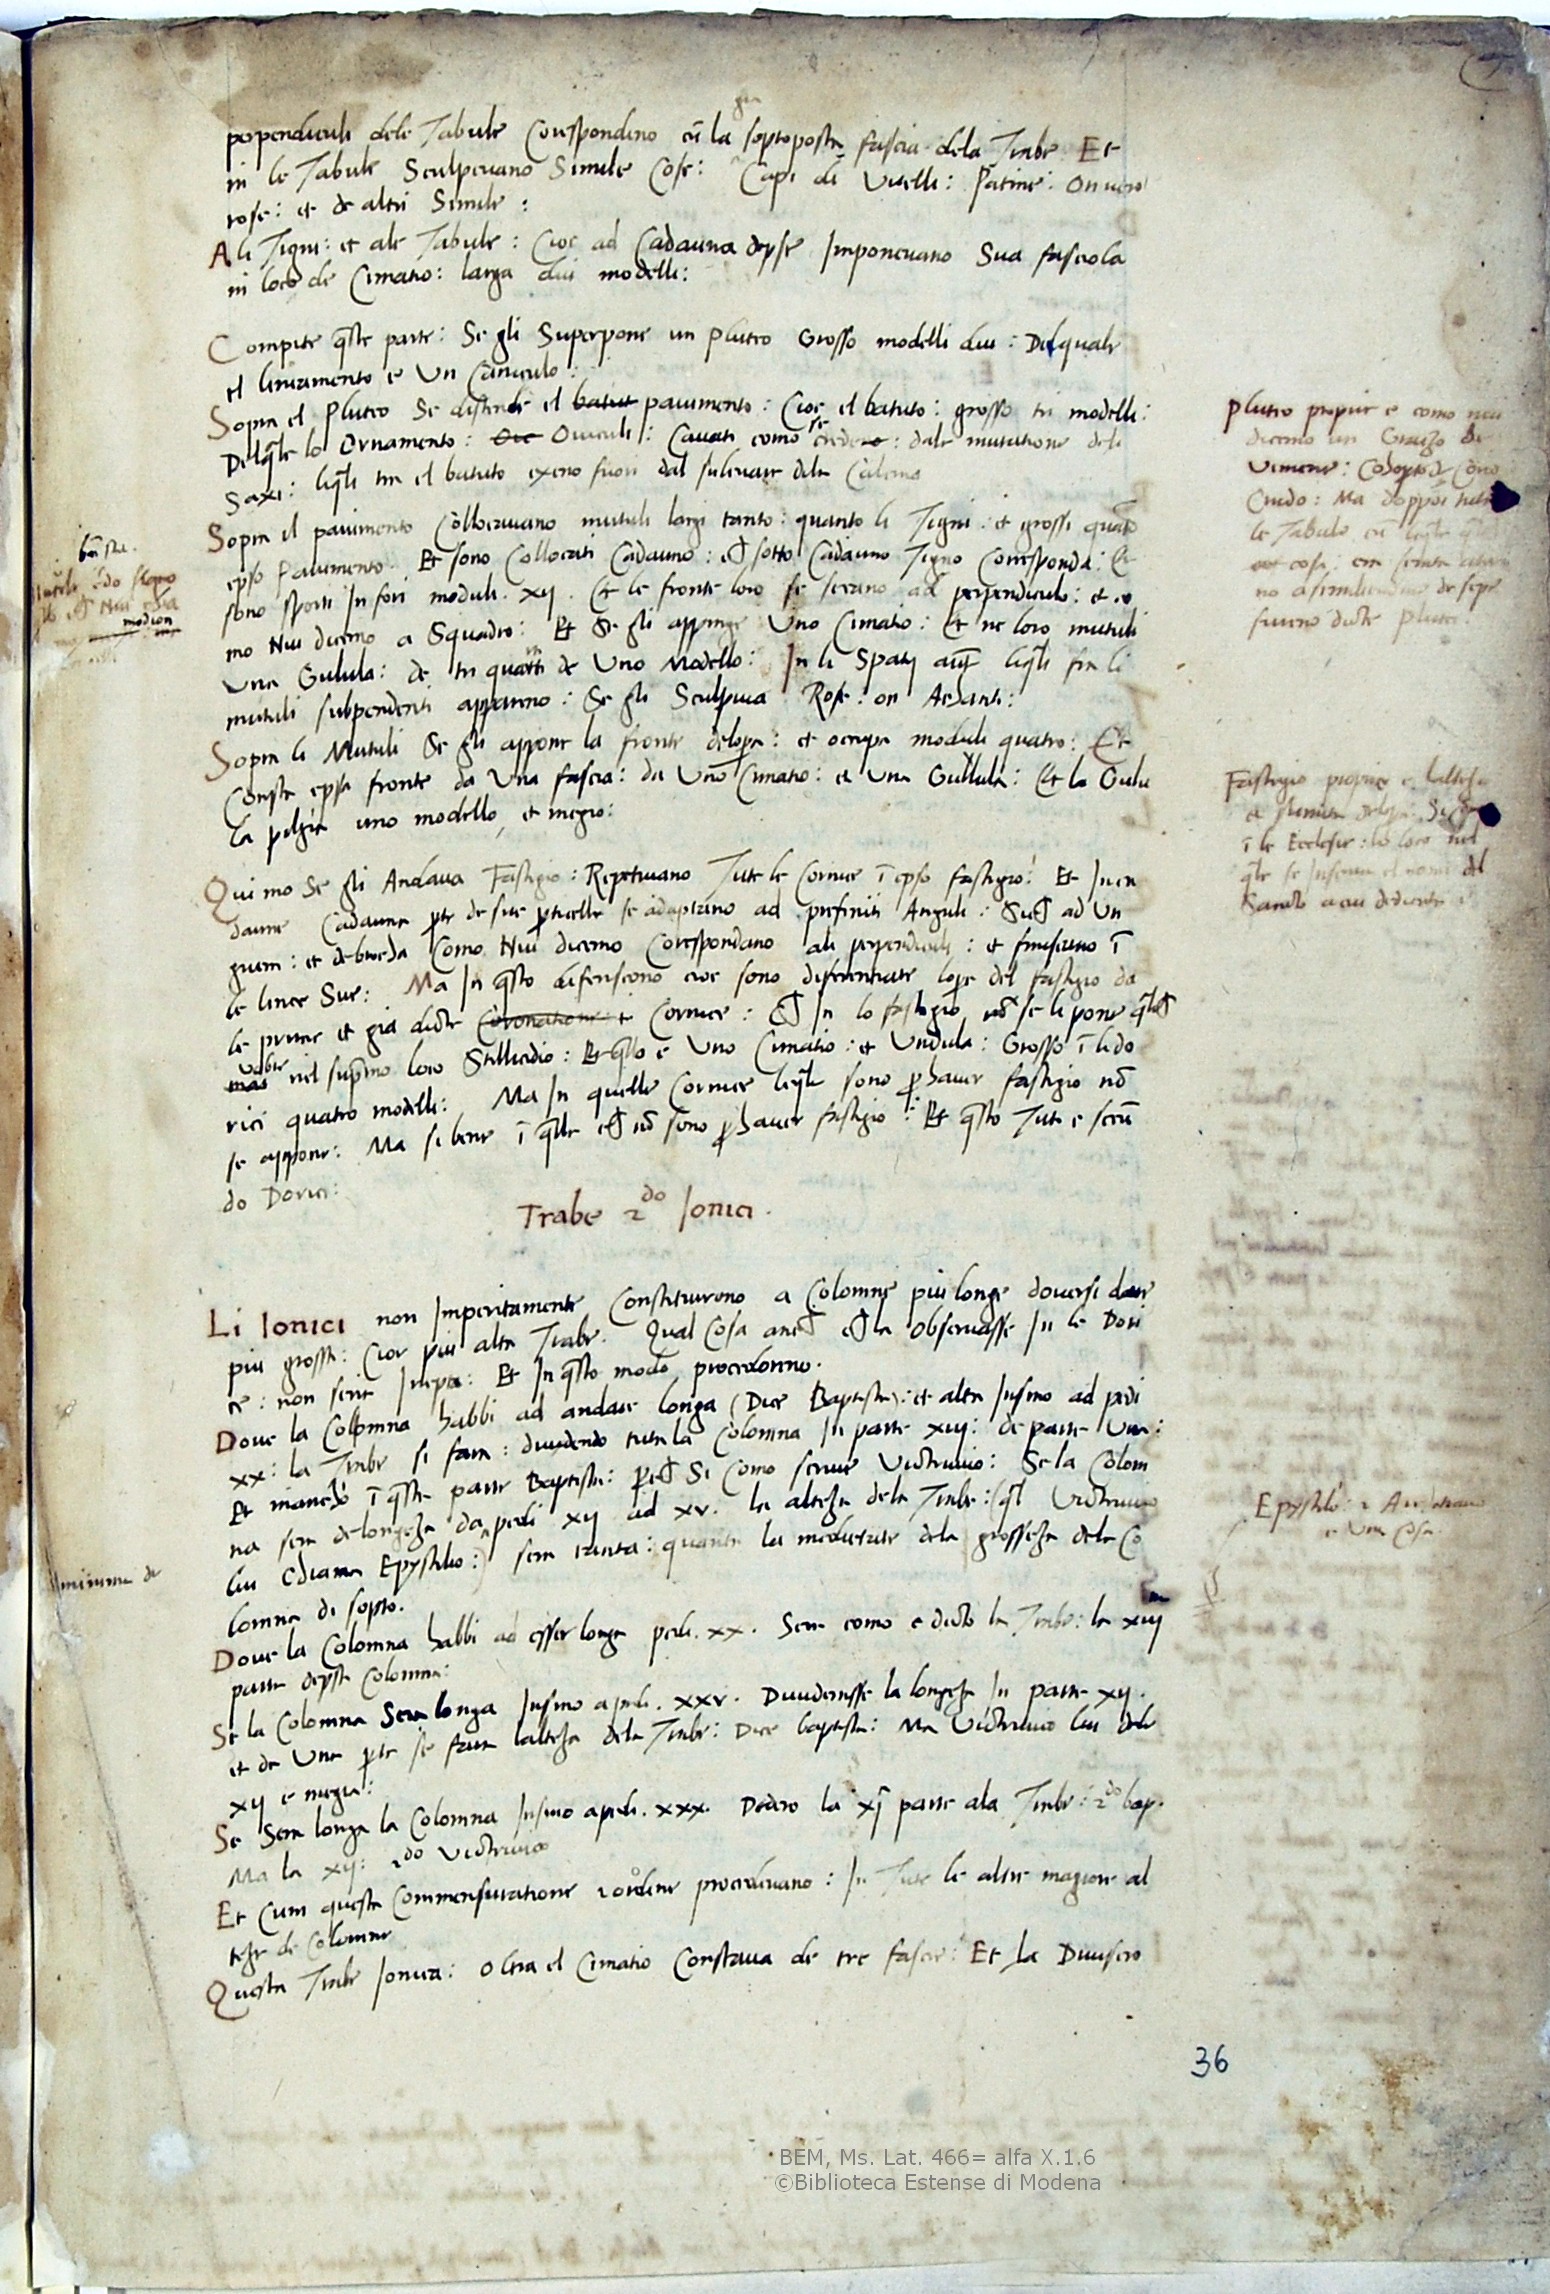 perpendiculi dele Tabule Corespondino cũ la soptoposta fascia dela Trabe Et
in le Tabule Sculpevano Simile Cose: Capi di Vitelli: Patine: On vero
rose: et de altri Simile:
A li Tigni: et ale Tabule: Cioe ad Cadauna depse Imponevano Sua fasciola
in loco de Cimatio: larga dui modelli:
Compite q̃ste parte: Se gli Superpone un Pluteo Grosso modelli dui: Del quale
el liniamento e Un Canculo:
Sopra el Pluteo Se distende el batut pauimento: Cioe el batuto: grosso tri modelli:
Del q̃le lo Ornamento: Oviculi: Cavati como se crede: dale mutatione dele
Saxi: liq̃li tra el batuto exeno fuori dal
Sopra el pauimento Collocavano mutuli largi tanto: quanto li Tigni: et grossi quãto
epso Pauimento. Et sono Collocati Cadauno: cħ sotto Cadauno Tigno Corresponda: Et
sono sporti In fori moduli. xij. Et le fronte loro se serano ad perpendiculo: et co
mo Nui dicemo a Squadro: Et Se gli appinge Uno Cimatio: Et ne loro mutuli
Una Gulula: de tri quarti de Uno Modello: In li Spatij aũt liq̃li fra li
mutuli subpendenti appareno: Se gli Sculpiua Rose: on Achanti:
Sopra li Mutuli Se gli appone la fronte delopa: et occupa moduli quatro: Et
Consta epsa fronte da Una fascia: da Uno Cimatio: et Una Gullula: Et la Gulu
la pelgia uno modello, et megio:
Qui mo Se gli Andava Fastigio: Repetivano Tute le Cornice ĩ epso fastigio: Et In ca
daune Cadauna pte de sue pticelle se adaptano ad prefiniti Anguli: Sicħ ad Un
guem: et debtueda Como Nui dicemo Corespondano ali perpendiculi: et finiscano ĩ
le linee Sue: Ma In q̃sto diferiscono cioe sono diferentiate lope del fastigio da
le prime et gia dicte Coronatione et Cornice: cħ In lo fastigio nõ se li pone
nel supremo loco Stillicidio: Et q̃sto e Uno Cimatio: et Undula: Grosso ĩ li do
rici quatro modelli: Ma In quelle Cornice leq̃le sono p haver fastigio nõ
se appone: Ma si bene ĩ q̃lle cħ nõ sono p haver fastigio: Et q̃sto Tuto e secũ
do Dorici:
Trabe 2do Ionici.
Li Ionici non Imperitamente Constituirono a Colomne piu longe doversi dare
piu grossa: Cioe piu alta Trabe. Qual Cosa ancħ cħ la Observasse In le Dori
ce: non seria Inepta: Et In q̃sto modo procedereno.
Dove la Colomna habbi ad andare longa (Dice Baptista): et alta Insino ad pedi
xx: la Trabe si fara: dividendo tuta la Colomna In parte xiij: de parte Una:
Et mancho ĩ q̃sta parte Baptista: pcħ Si Como scrive Victruvio: Se la Colom
na sera de longeza da pedi xij ad xv. la alteza dela Trabe: (q̃l Victruvio
lui Chiama Epystilio:) sera tanta: quanta la medietate dela grosseza dela Co
lomna di sopto.
Dove la Colomna habbi ad esser longa pedi. xx. Sera como e dicto la Trabe: la xiij
parte depsa Colomna:
Se la Colomna Sera longa Insino a pedi. xxv. Dividerasse la longeza In parte xij.
et de Una pte se fara lalteza dela Trabe: Dice baptista: Ma Victruvio lui dele
xij e megia:
Se Sera longa la Colomna Insino a pedi. xxx. Decaro la xj parte ala Trabe: 2do bap.
Ma la xij: 2do Victruvio
Et Cum questa Commensuratione 2 ordine procedevano: In Tute le altre magiore al
teze de Colomne
Questa Trabe Ionica: Oltra el Cimatio Constava de tre fasce: Et la Divisero
Pluteo propie e como nui
dicemo un Graizo de
Vimene: Cohoptode Corio
Crudo: Ma
le Tabule
cose
no de sepe
furno dicte Plutei:
Fastigio propie e lalteza
ĩ le Ecclesie: lo loco nel
q̃le se Inscrive el nome del
Sancto a cui dedicata e
Epystilo: 2 Architravo
e Una Cosa.
modion
minima de
36
BEM, Ms. Lat. 466= alfa X.1.6
©Biblioteca Estense di Modena